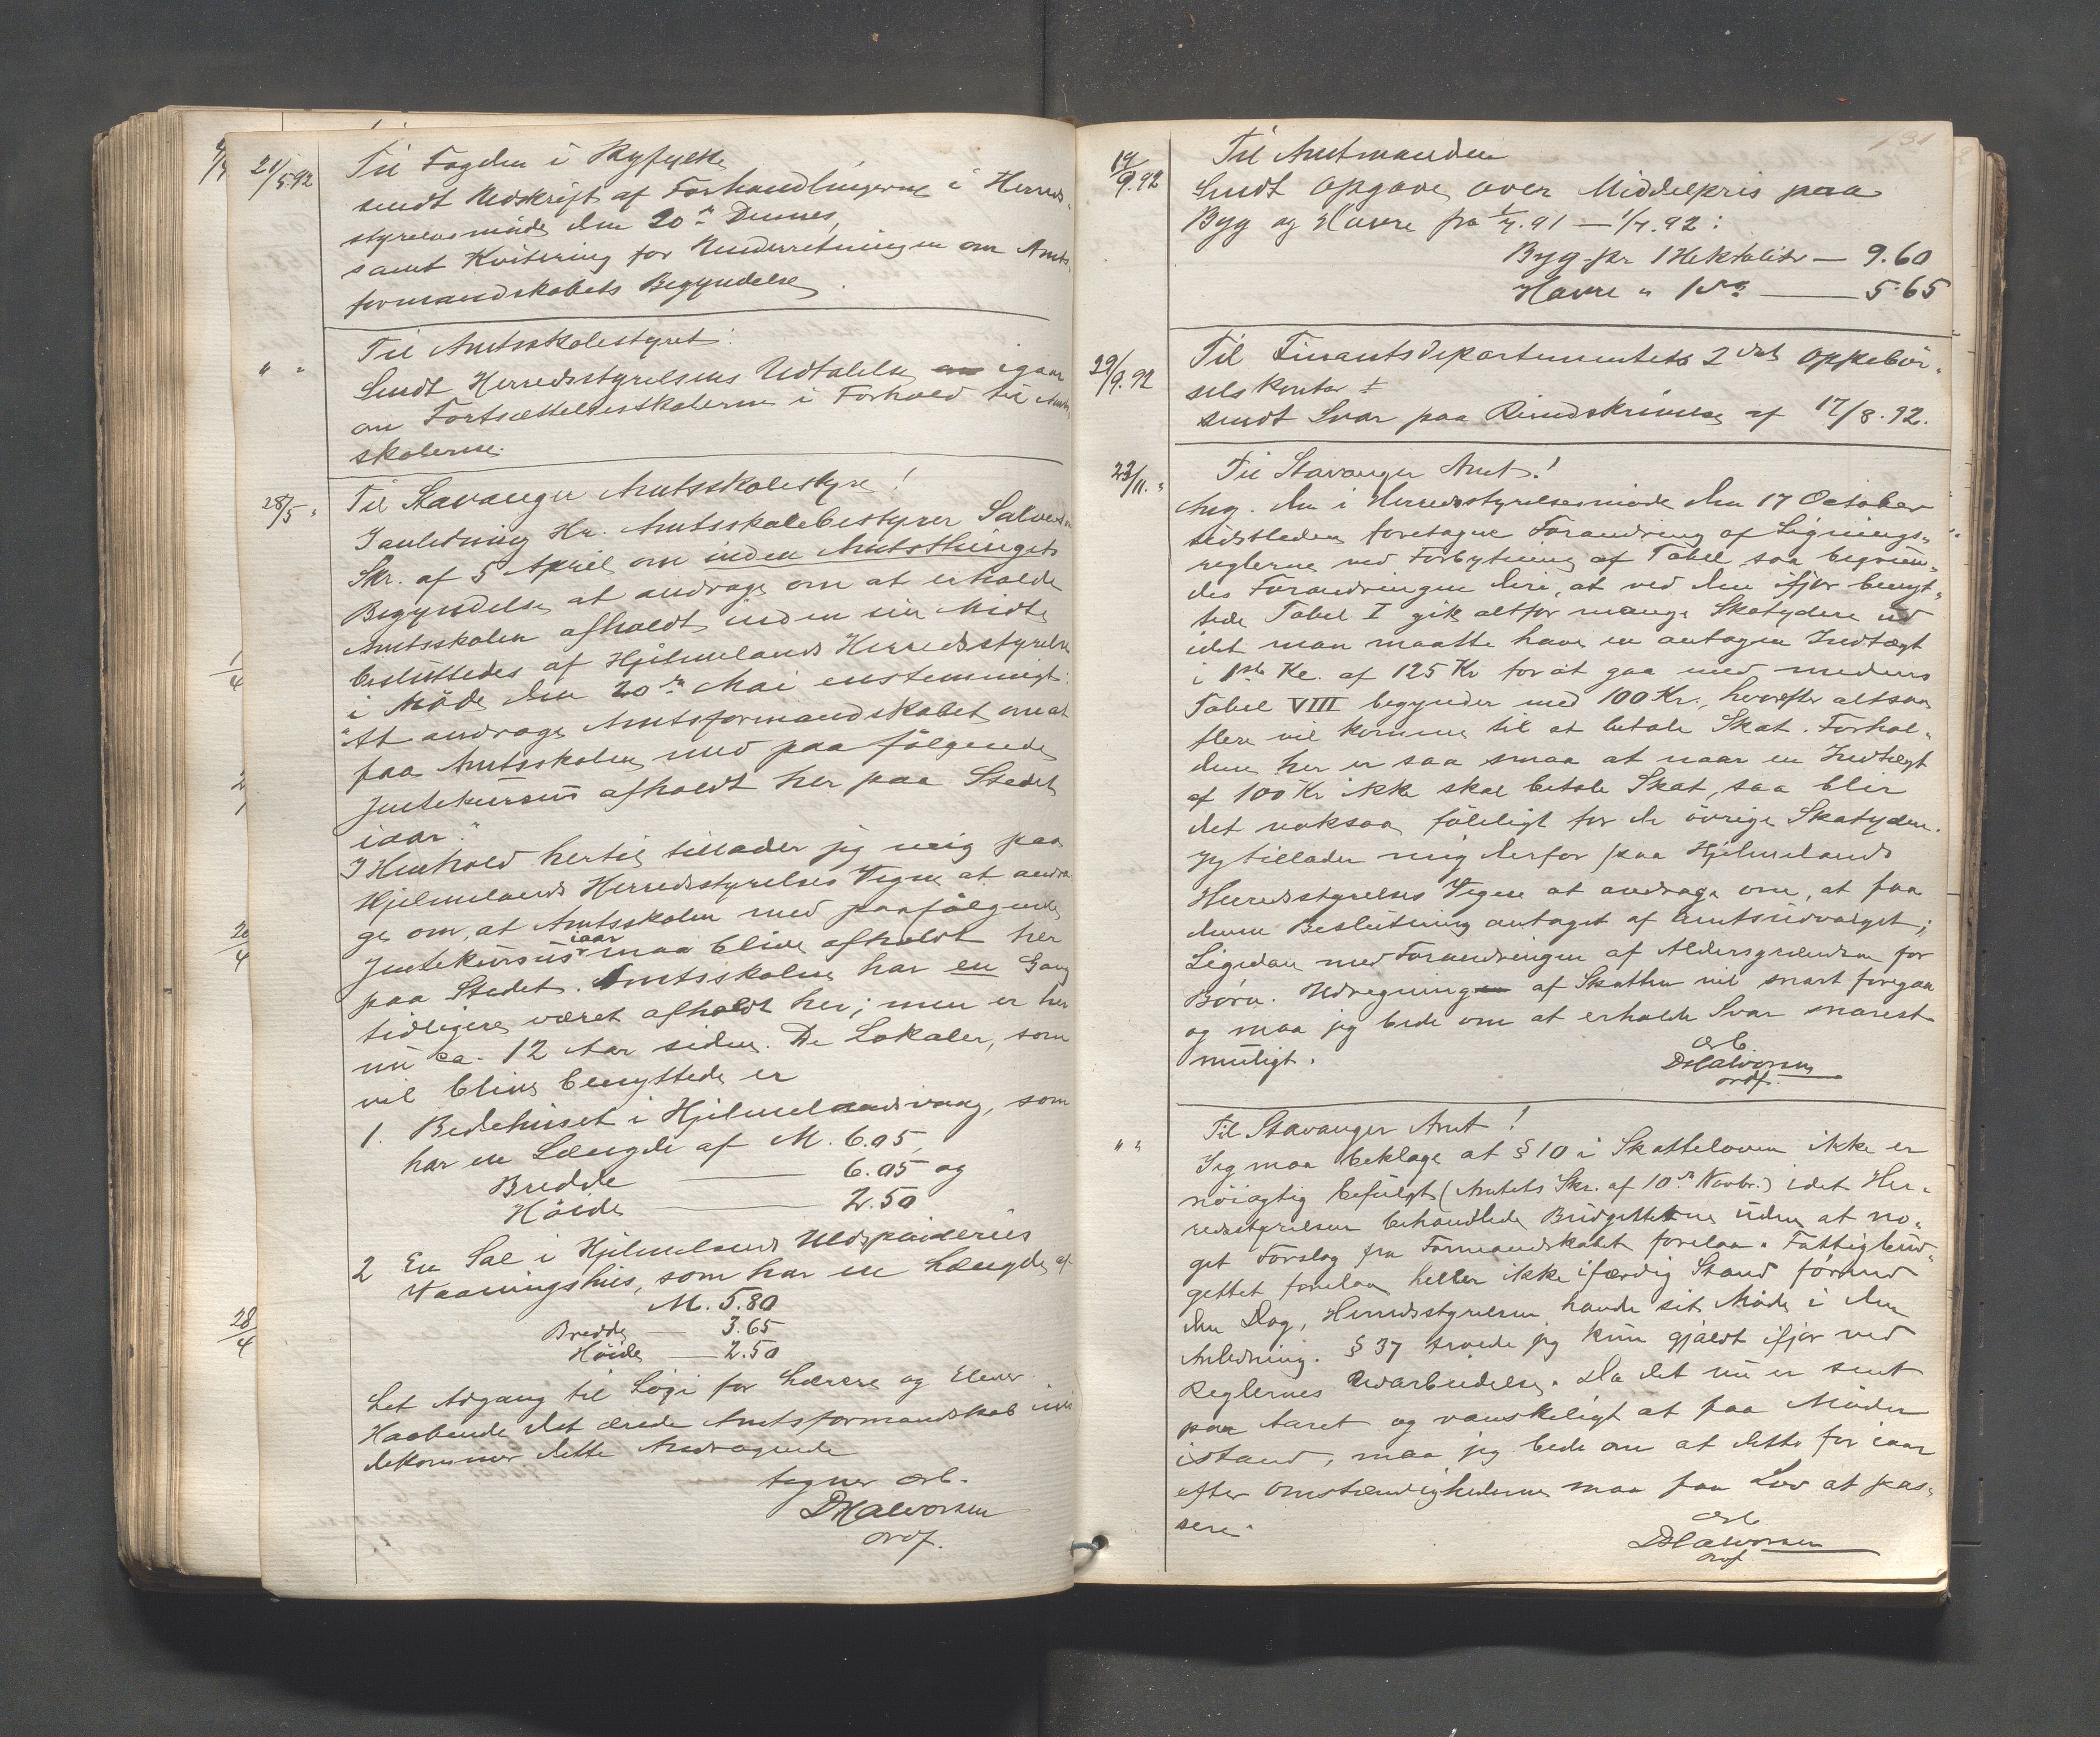 21/5.92 Til Fogden i Ryfylke
sendt Udskrift af Forhandlingerne i Herreds-
styrelsesmøde den 20de Dennes,
samt Kvitering for Underretningen om Amts-
formandskabets Begyndelse.
" " Til Amtsskolestyret:
Sendt Herredsstyrelsens Udtalelse igaar
om Fortsættelsesskolerne i Forhold til Amts-
skolerne.
28/5 " Til Stavanger Amtsskolestyre!
I anledning Hr. Amtsskolebestyrer Salvesens
Skr. af 5 April om inden Amtsthingets
Begyndelse at andrage om at erholde
Amtsskolen afholdt inden sin Midte
besluttedes af Hjelmelands Herredsstyrelse
i Møde den 20de Mai enstemmigt:
"At andrage Amtsformandskabet om at
faa Amtsskolen med paafølgende
Jentekursus afholdt her paa Stedet
iaar."
I Henhold hertil tillader jeg mig paa
Hjelmelands Herredsstyrelses Vegne at andra-
ge om, at Amtsskolen med paafølgende
Jentekursus iaar maa blive afholdt her
paa Stedet. Amtsskolen har en Gang
tidligere været afholdt her; men er her
nu ca. 12 Aar siden. De Lokaler, som
vil blive benyttede er
1. Bedehuset i Hjelmelandsvaag, som
har en Længde af M. 6.05,
Bredde — 6.05 og
Høide — 2.50
2 En Sal i Hjelmelands
Vaaningshus, som har en Længde af
M. 5.80
Bredde — 3.65
Høide — 2.50
Let Adgang til Logi for Lærere og Elever.
Haabende det ærede Amtsformandskab imø-
dekommer dette Andragende
tegner ærb.
DHalvorsen
ordf.
131
14/9.92 Til Amtmanden
Sendt Opgave over Middelpris paa
Byg og Havre fra 1/7.91 — 1/7.92:
Byg pr 1 Hektoliter — 9.60
Havre " 1 do — 5.65
29/9.92 Til Finantsdepartementets 2det Oppebør-
selskontor
sendt Svar paa Rundskrivelse af 17/8.92.
23/11. " Til Stavanger Amt!
Ang. den i Herredsstyrelsesmøde den 17 October
sidstleden foretagne Forandring af Lignings-
reglerne ved Forbytning af Tabel saa begrun-
des Forandringen deri, at ved den ifjor benyt-
tede Tabel I gik altfor mange Skatydere ud
idet man maatte have en antagen Indtægt
i 1ste Kl. af 125 Kr for at gaa med medens
Tabel VIII begynder med 100 Kr., hvorefter altsaa
flere vil komme til at betale Skat. Forhol-
dene her er saa smaa at naar en Indtægt
af 100 Kr ikke skal betale Skat, saa blir
det noksaa føleligt for de øvrige Skatydere.
Jeg tillader mig derfor paa Hjelmelands
Herredsstyrelses Vegne at andrage om, at faa
denne Beslutning antaget af Amtsudvalget;
Ligedan med Forandringen af Aldersgrændsen for
Børn. Udregning af Skatten vil snart foregaa
og maa jeg bede om at erholde Svar snarest
muligt.
ærb.
DHalvorsen
ordf.
" " Til Stavanger Amt!
Jeg maa beklage at § 10 i Skatteloven ikke er
nøiagtig befulgt (Amtets Skr. af 10de Novbr.) idet Her-
redsstyrelsen behandlede Budgetterne uden at no-
get Forslag fra Formandskabet forelaa. Fattigbud-
gettet forelaa heller ikke ifærdig Stand førend
den Dag, Herredsstyrelsen havde sit Møde i den
Anledning. § 37 troede jeg kun gjaldt ifjor ved
Reglernes Udarbeidelse. Da det nu er sent
paa Aaret og vanskeligt at faa Møder
istand, maa jeg bede om at dette for iaar
efter Omstændighederne maa faa Lov at pas-
sere.
ærb
DHalvorsen
ordf